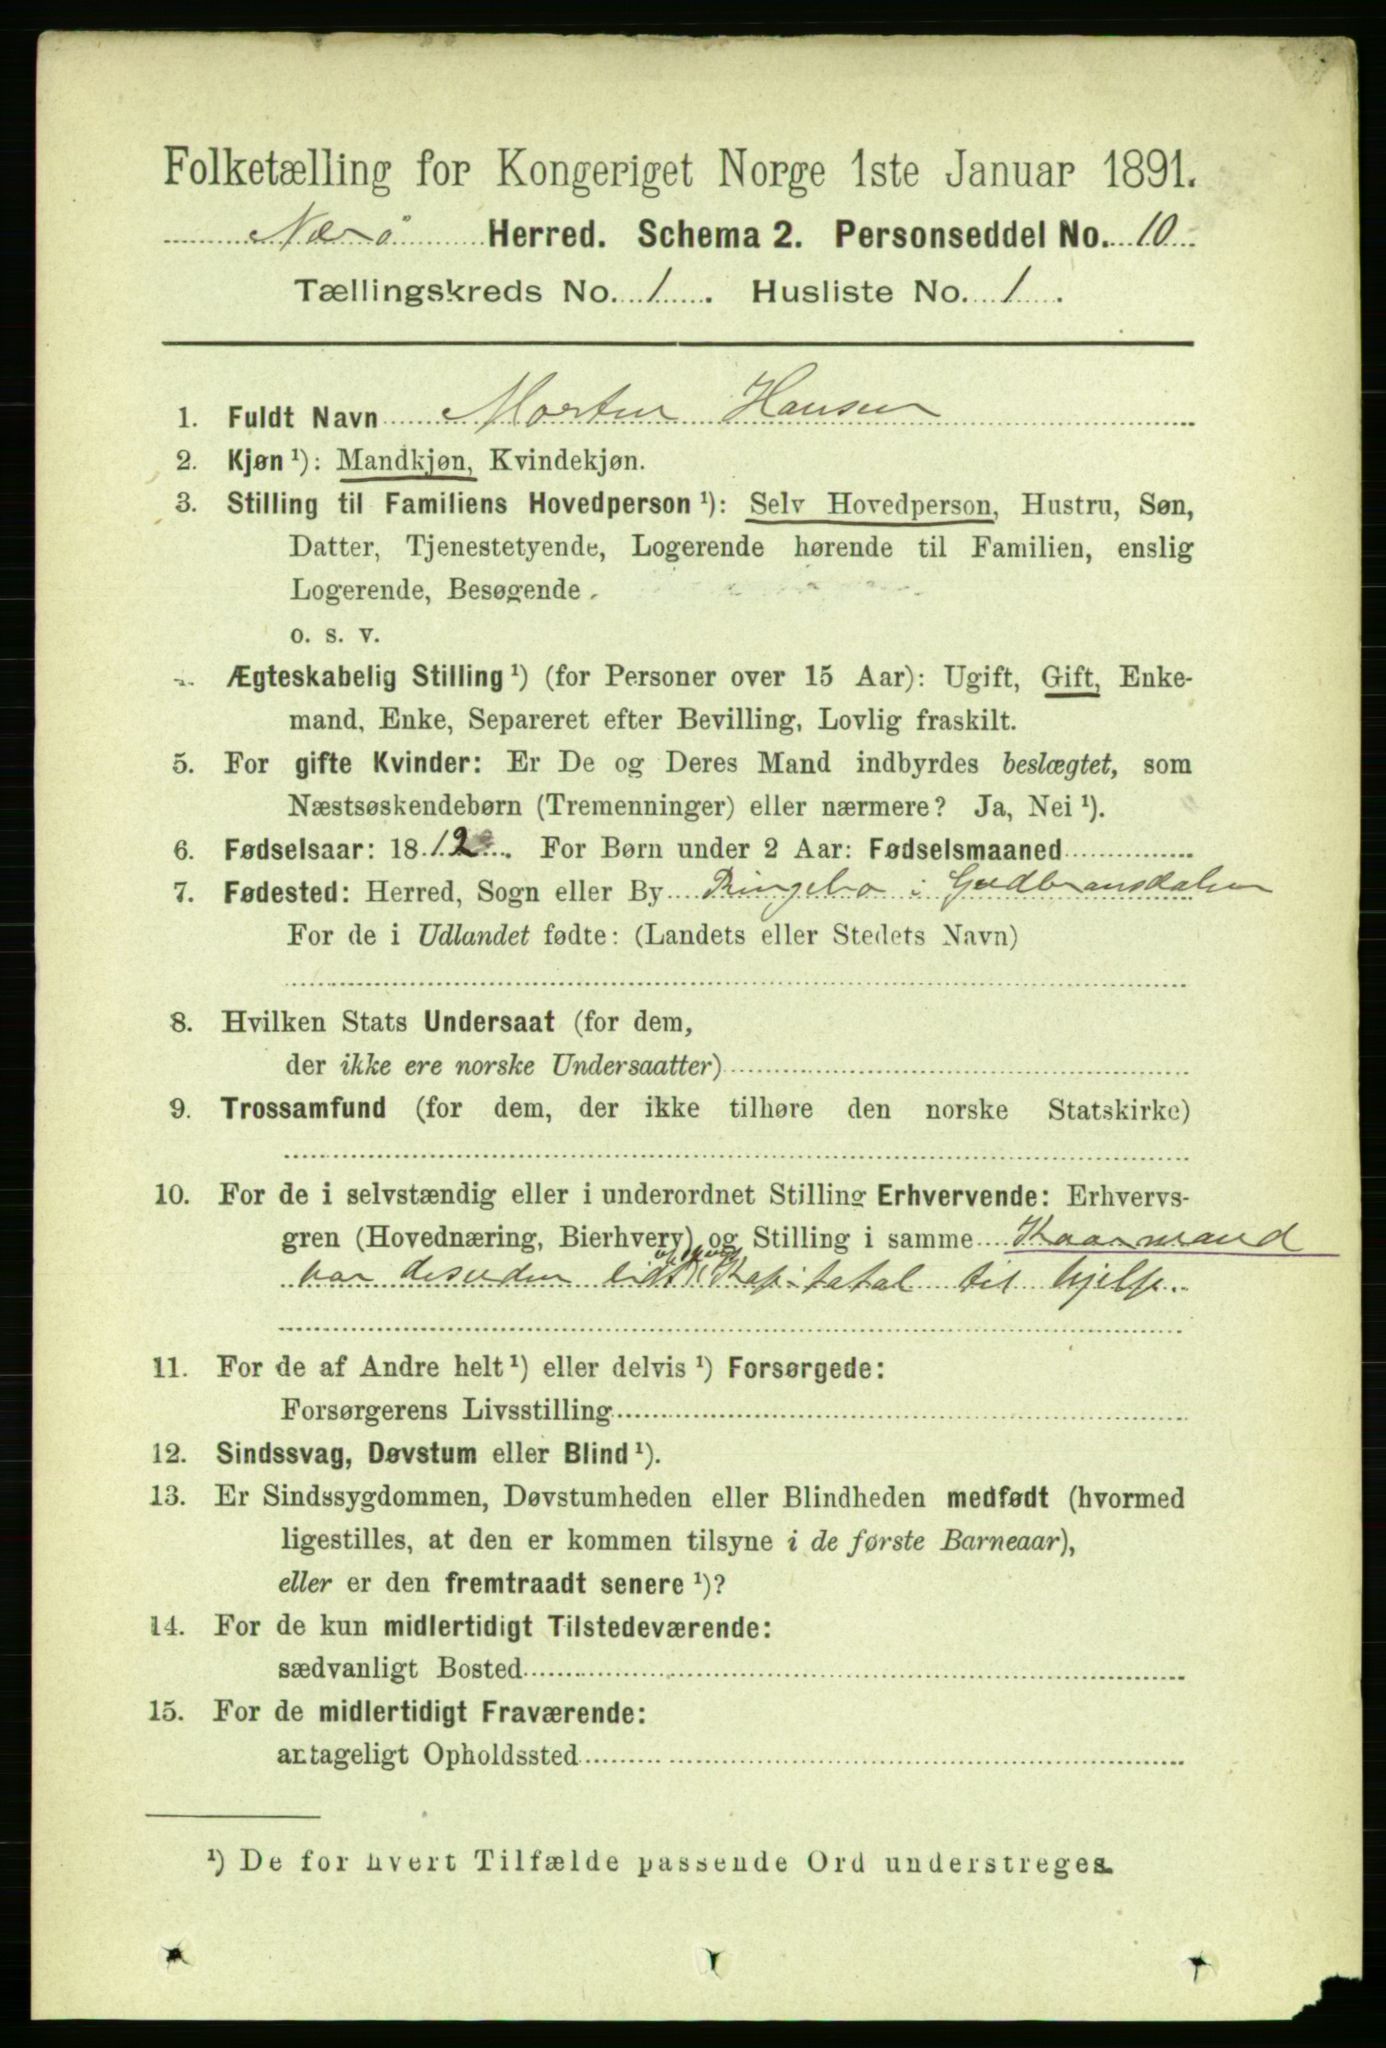 Folketælling for Kongeriget Norge 1ste Januar 1891.
Nærö Herred. Schema 2. Personseddel No. 10
Tællingskreds No. 1. Husliste No. 1.
1. Fuldt Navn Morten Hansen
2. Kjøn ¹): Mandkjøn, Kvindekjøn.
3. Stilling til Familiens Hovedperson ¹): Selv Hovedperson, Hustru, Søn,
Datter, Tjenestetyende, Logerende hørende til Familien, enslig
Logerende, Besøgende.
o. s. v.
Ægteskabelig Stilling ¹) (for Personer over 15 Aar): Ugift, Gift, Enke-
mand, Enke, Separeret efter Bevilling, Lovlig fraskilt.
5. For gifte Kvinder: Er De og Deres Mand indbyrdes beslægtet, som
Næstsøskendebørn (Tremenninger) eller nærmere? Ja, Nei ¹).
6. Fødselsaar: 1812. For Børn under 2 Aar: Fødselsmaaned
7. Fødested: Herred, Sogn eller By Ringebo i Gudbransdalen
For de i Udlandet fødte: (Landets eller Stedets Navn)
8. Hvilken Stats Undersaat (for dem,
der ikke ere norske Undersaatter)
9. Trossamfund (for dem, der ikke tilhøre den norske Statskirke)
10. For de i selvstændig eller i underordnet Stilling Erhvervende: Erhvervs-
gren (Hovednæring, Bierhverv) og Stilling i samme Kaarmand
har desuden lidt Kapitatal til hjelp.
11. For de af Andre helt ¹) eller delvis ¹) Forsørgede:
Forsørgerens Livsstilling
12. Sindssvag, Døvstum eller Blind ¹).
13. Er Sindssygdommen, Døvstumheden eller Blindheden medfødt (hvormed
ligestilles, at den er kommen tilsyne i de første Barneaar),
eller er den fremtraadt senere ¹)?
14. For de kun midlertidigt Tilstedeværende:
sædvanligt Bosted
15. For de midlertidigt Fraværende:
antageligt Opholdssted
¹) De for hvert Tilfælde passende Ord understreges.